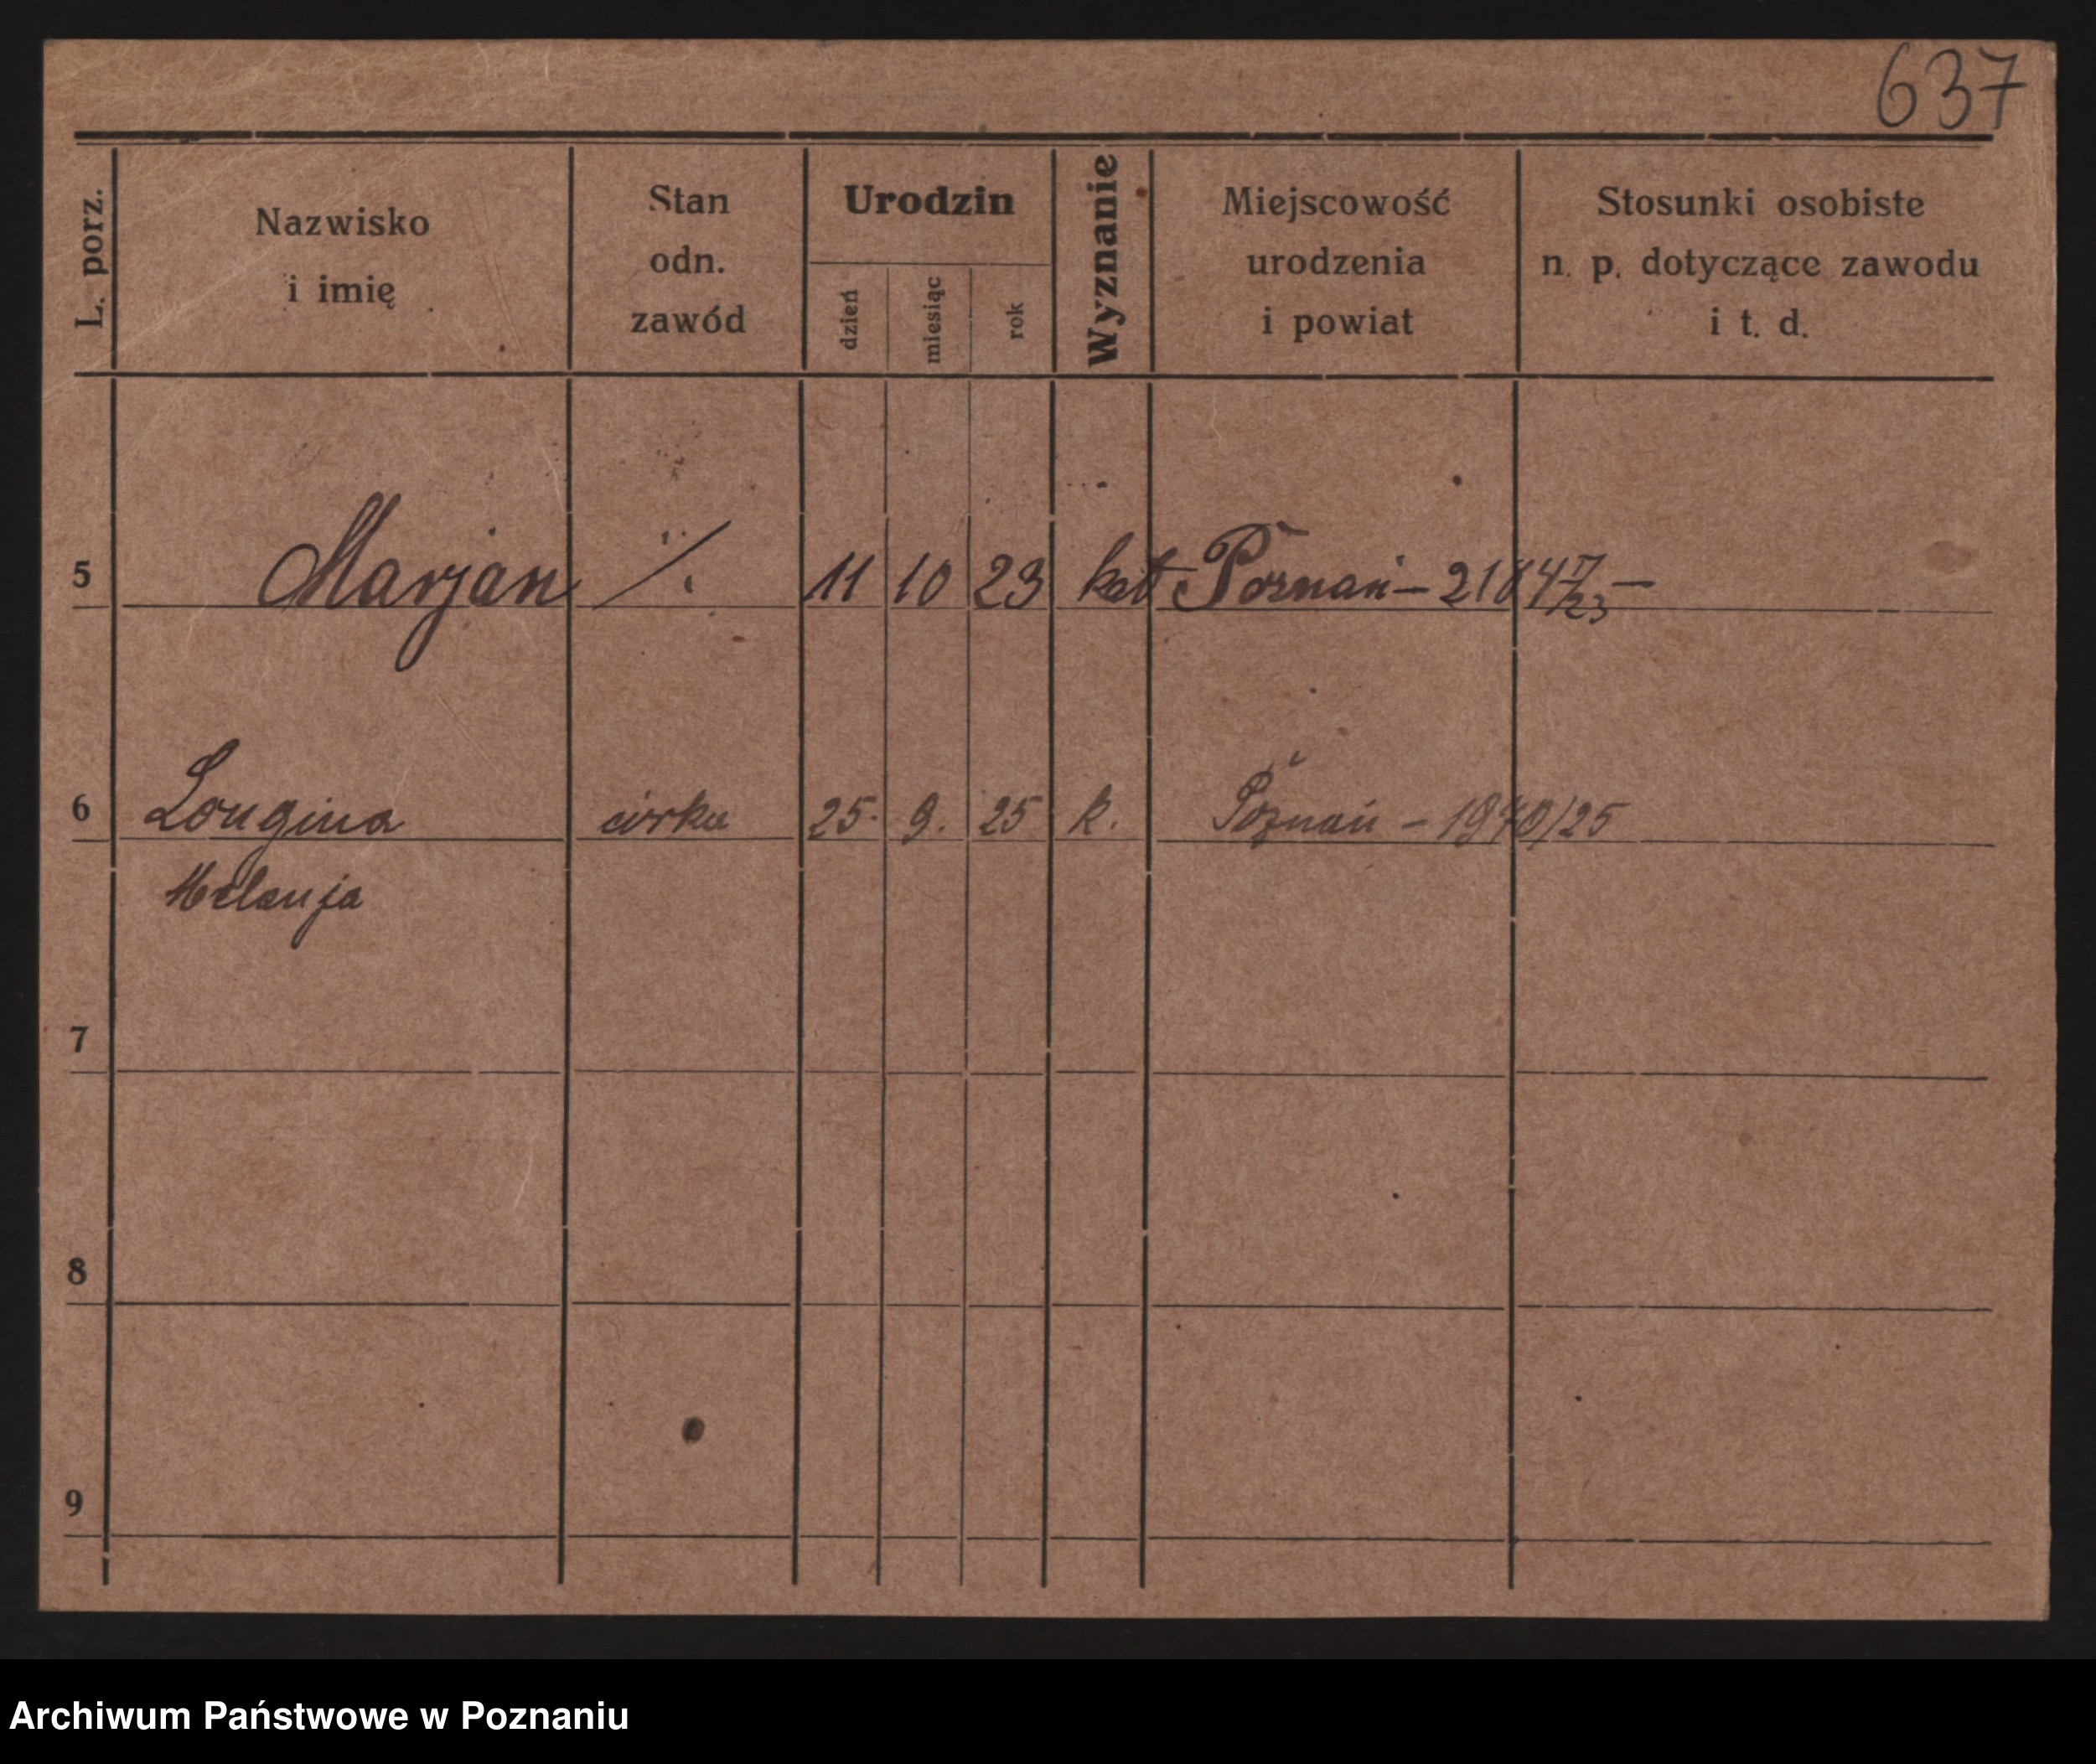 637
L. porz.
Nazwisko
i imię
Stan
odn.
zawód
Urodzin
dzień
miesiąc
rok
Wyznanie
Miejscowość
urodzenia
i powiat
Stosunki osobiste
n. p. dotyczące zawodu
i t. d.
5 Marjan ⁒ 11 10 23 kat Poznań –
6 Longina córka 25. 9. 25 k. Poznań – 1970/25
Melanja
7
8
9
Archiwum Państwowe w Poznaniu